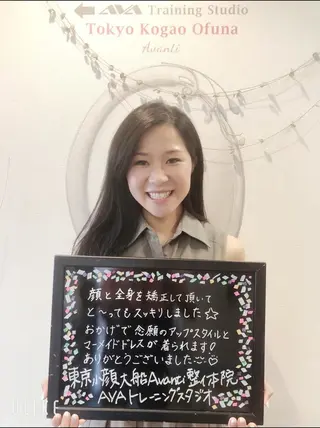 ← AVA Training Studio
Tokyo Kogao Ofuna
Avanti
顔と全身を矯正して頂いて
と〜ってもスッキリしました☆
おかげで念願のアップスタイルと
マーメイドドレスが着られます!
ありがとうございました
東京小顔大船Avanti整体院
AVAトレーニングスタジオ